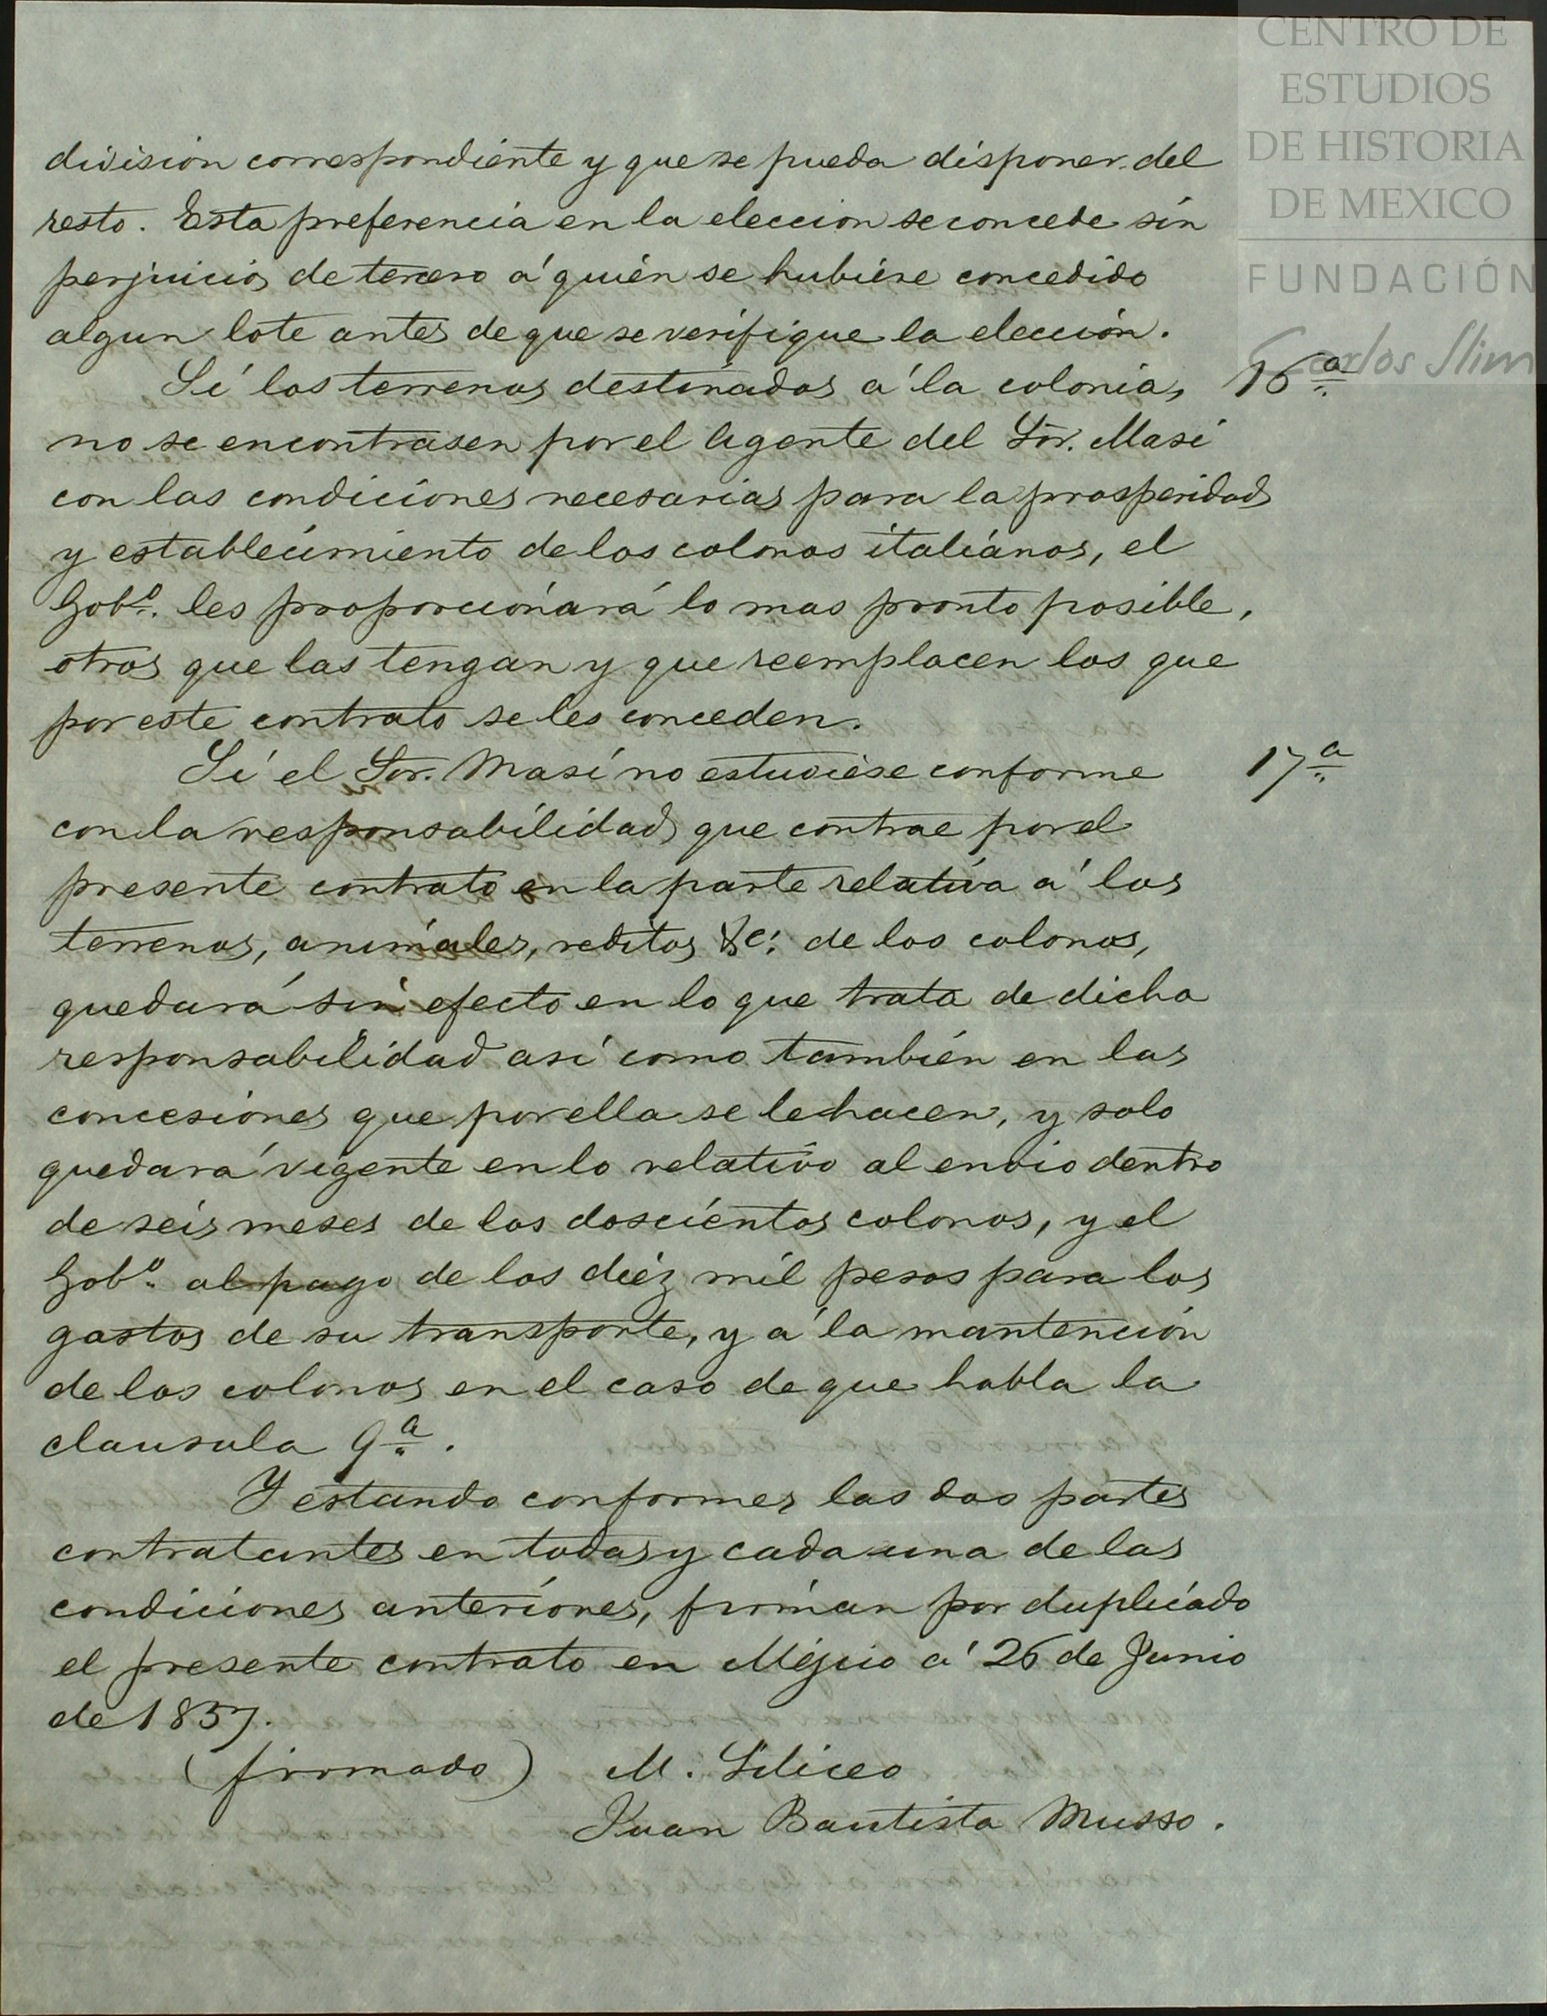 CENTRO DE
ESTUDIOS
DE HISTORIA
DE MEXICO
FUNDACIÓN
Carlos Slim
division correspondiente y que se pueda disponer del
resto. Esta preferencia en la eleccion se concede sin
perjuicio de tercero á quién se hubiére concedido
algun lote antes de que se verifique la elección.
Sí los terrenos destinados á la colonia, 16ª
no se encontrasen por el Agente del Sör. Masi
con las condiciones necesarias para la prosperidad
y establecimiento de los colonos italianos, el
Gobº. les proporcionará lo mas pronto posible,
otros que las tengan y que reemplacen los que
por este contrato se les conceden.
Sí el Sör. Masi no estuviese conforme 17ª
con la responsabilidad que contrae por el
presente contrato en la parte relativa á los
terrenos, animales, reditos &c: de los colonos,
quedará sin efecto en lo que trata de dicha
responsabilidad así como también en las
concesiones que por ella se le hacen, y solo
quedará vigente en lo relativo al envio dentro
de seis meses de los doscientos colonos, y el
Gobº. al pago de los diéz mil pesos para los
gastos de su transporte, y á la mantención
de los colonos en el caso de que habla la
clausula 9ª.
Y estando conformes las dos partes
contratantes en todas y cada una de las
condiciones anteriores, firman por duplicado
el presente contrato en Méjico á 26 de Junio
de 1857.
(firmado) M. Siliceo
Juan Bautista Musso.